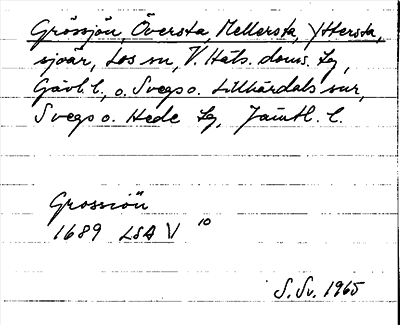 Grössjön, Översta, Mellersta, Yttersta,
sjöar, Los sn, V. Häls. doms. tg,
Gävl. l., o. Svegs o. Lillhärdals snr,
Svegs o. Hede tg, Jämtl. l.
Grossiön
1689 LSA V 10
S. Sv. 1965